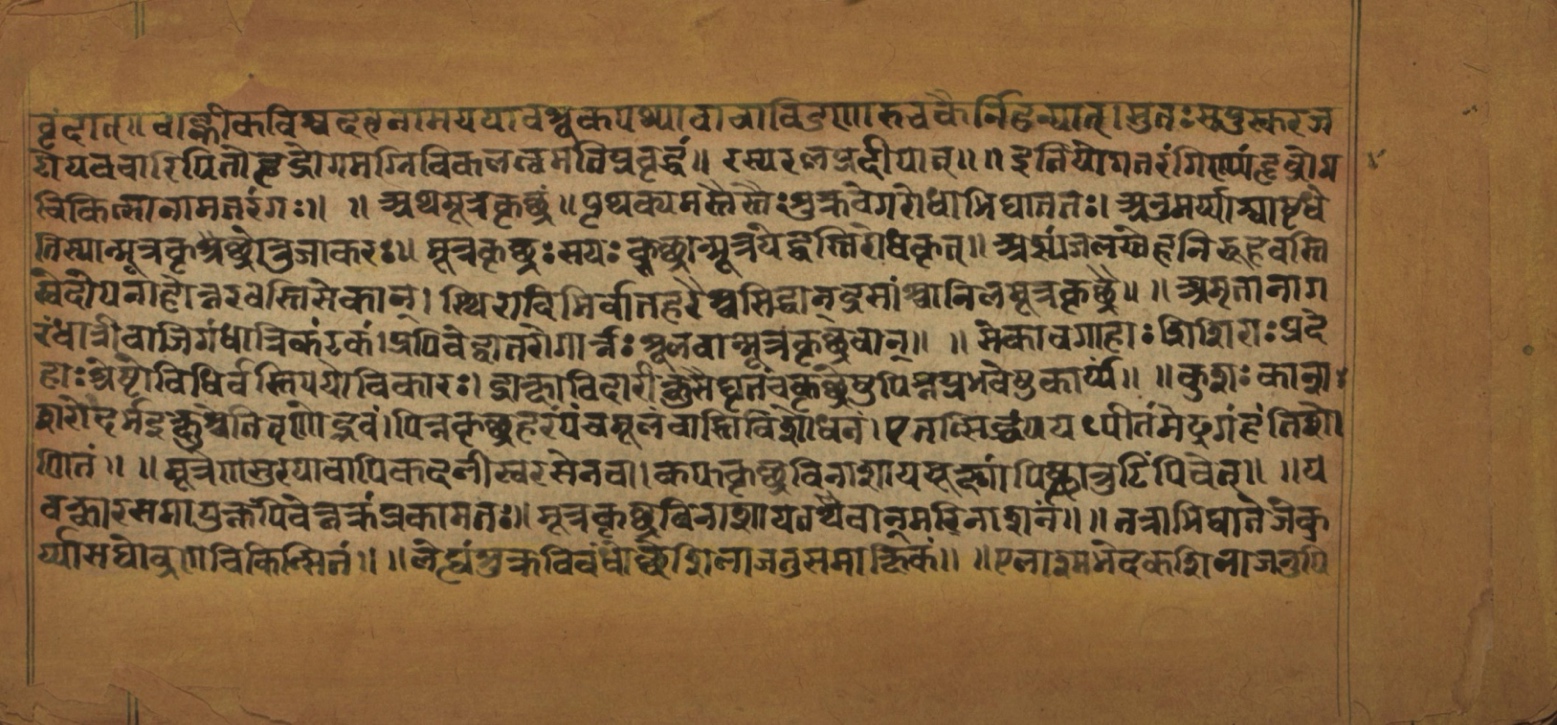 वृंदात्॥ वाह्लीकविश्वदहनामययावश्वकपथ्यावचाविडगारुचकैर्निहन्यात्। सुतः सपुस्करज
टीयववारिपितोहृद्रोगमग्निविकलत्वमतिप्रवृद्धं॥ रस्यरलप्रदीपात्॥ ॥ इतियोगतरंगिण्यांहृद्रोग
चिकित्सानामतरंगः॥ ॥ अथमूत्रकृछ्रं॥ पृथक्यमस्तैस्तैः शुक्रवेगरोधाभिघाततः। अनुमर्य्याश्चाष्टधे
तिस्यान्मूत्रकृछ्रोनुजाकरः॥ मूत्रकृछ्रः सयः कृछ्रान्मूत्रयेद्वस्तिरोधकृत्॥ अभ्यंजनस्नेहनिरूहवस्ति
स्वेदोपनाहोत्तरवस्तिसेकान्। स्थिरादिभिर्वातहरैश्चसिद्धान्द्रसांश्चानिलमूत्रकृछ्रे॥ ॥ अमृतानाग
रंधात्रीवाजिगंधात्रिकंटकं। प्रपिवेद्वातरोगार्त्तः शूलवान्मूत्रकृछ्रवान्॥ ॥ सेकावगाहाः शिशिराः प्रदे
हाः ग्रैष्मोविधिर्वस्तिपयोविकारः। द्राक्षाविदारीक्षुरसैघृतंचकृछ्रेषुपित्तप्रभवेषुकार्य्यं॥ ॥ कुशः काशः
शरोदर्भइक्षुश्चेतितृणोद्भवं। पित्तकृछ्रहरंपंचमूलंवस्तिविशोधनं। एतत्सिद्धंपयःपीतंमेढ्रगंहंतिशो
णितं॥ ॥ मूत्रेणसुरयावापिकदलीस्वरसेनवा। कफकृछ्रविनाशायसूक्ष्मांपिष्ट्वात्रुटिंपिवेत्॥ ॥ य
वक्षारसमायुक्तंपिवेत्तक्रंप्रकामतः॥ मूत्रकृछ्रविनाशायतथैवाश्मरिनाशनं॥ ॥ तत्राभिघातजेकु
र्य्यात्सद्योव्रणचिकित्सितं॥ ॥ लेह्यंशुक्रविबंधोत्थेशिलाजतुसमाक्षिकं॥ ॥ एलाश्मभेदकशिलाजतुपि